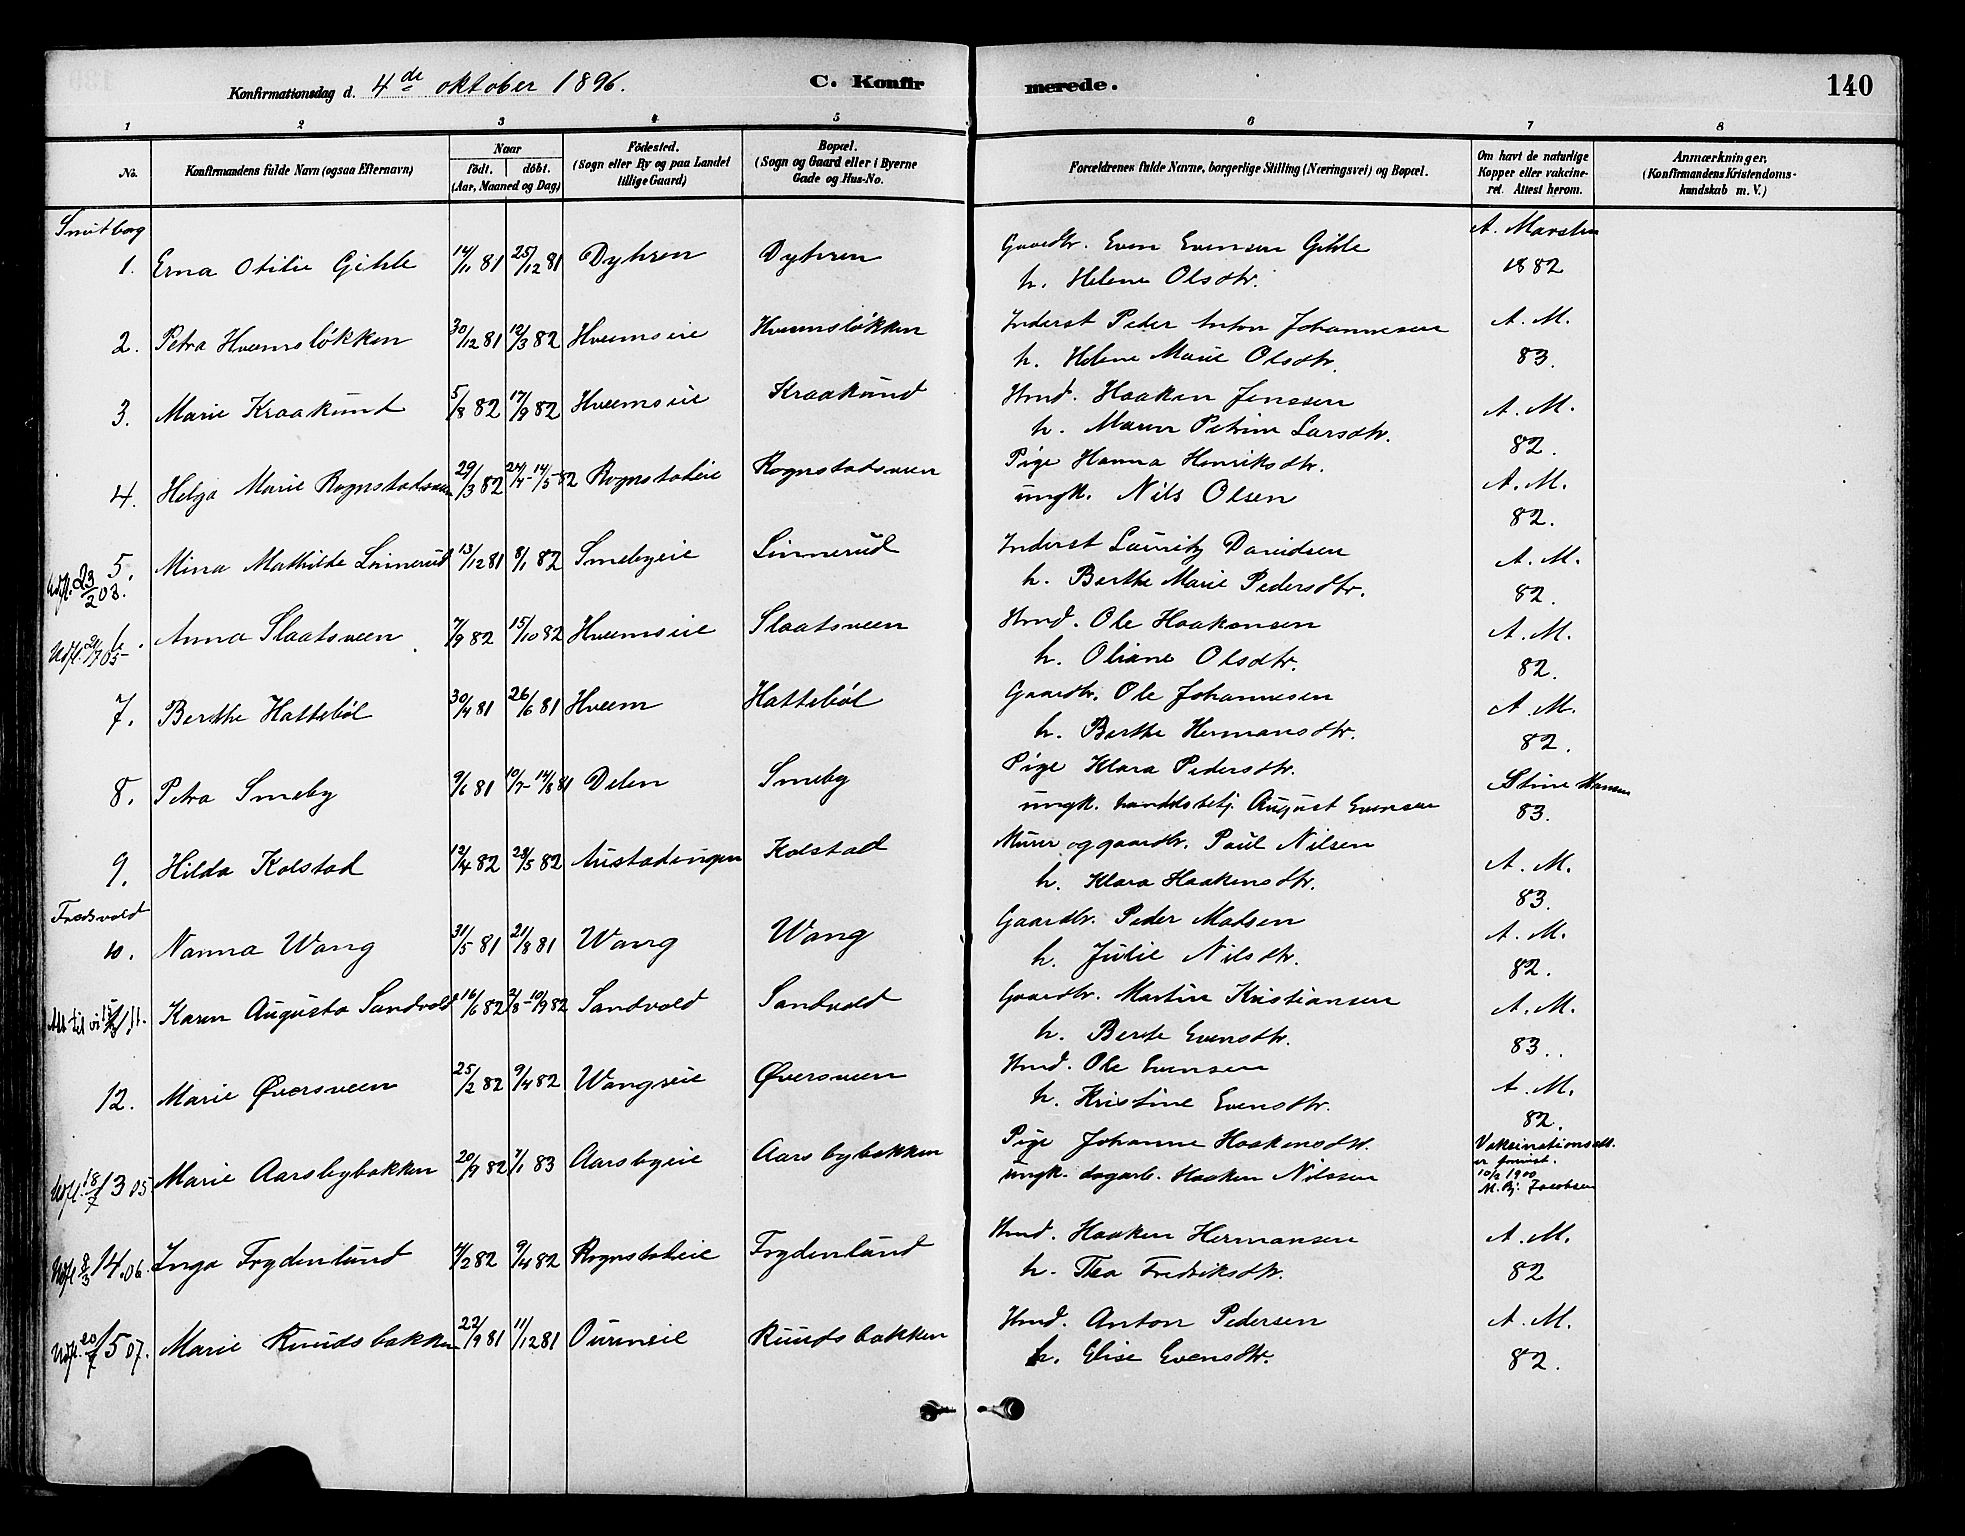 Konfirmationsdag d. 4de oktober 1896.
C. Konfirmerede.
140
1 2 3 4 5 6 7 8
No.
Konfirmandens fulde Navn (ogsaa Efternavn)
Naar
födt. döbt.
(Aar, Maaned og Dag)
Födested.
(Sogn eller By og paa Landet
tillige Gaard)
Bopæl.
(Sogn og Gaard eller i Byerne
Gade og Hus-No.
Forældrenes fulde Navne, borgerlige Stilling (Næringsvei) og Bopæl.
Om havt de naturlige
Kopper eller vakcine-
ret. Attest herom.
Anmærkninger.
(Konfirmandens Kristendoms-
kundskab m. V.)
1. Erna Otilie Gihle 14/11 81 25/12 81 Dyhren Dyhren Gaardbr. Even Evensen Gihle A. Marsten
h. Helene Olsdtr. 1882
2. Petra Hveemsløkken 30/12 81 12/3 82 Hveemseie Hveemsløkken Inderst Peder Anton Johannesen A. M.
h. Helene Marie Olsdtr. 83.
3. Marie Kraakund 5/8 82 17/9 82 Hveemseie Kraakund Hmd. Haaken Jenssen A. M.
h. Maren Petrine Larsdtr. 82.
4. Helga Marie Rognstadsveen 29/3 82 24/4 - 14/5 82 Rognstadeie Rognstadsveen Pige Hanna Henriksdtr. A. M.
ungk. Nils Olsen 82.
5. Mina Mathilde Linnerud 13/12 81 8/1 82 Smebyeie Linnerud Inderst Lauritz Davidsen A. M.
Udfl. 23/2 03. h. Berthe Marie Pedersdtr. 82.
6. Anna Slaatsveen 7/9 82 15/10 82 Hveemseie Slaatsveen Hmd. Ole Haakensen A. M.
Udfl. 21/7 05 h. Oliane Olsdtr. 82.
7. Berthe Hattebøl 30/4 81 26/6 81 Hveem Hattebøl Gaardbr. Ole Johannesen A. M.
h. Berthe Hermansdtr. 82.
8. Petra Smeby 9/6 81 10/7 - 14/8 81 Delen Smeby Pige Klara Pedersdtr. Stine Hansen
ungk. handelsbetj. August Evensen 83.
9. Hilda Kolstad 12/4 82 28/5 82 Austadengen Kolstad Murer og gaardbr. Paul Nilsen A. M.
h. Klara Haakensdtr. 83.
Fredsvold
10. Nanna Wang 31/5 81 21/8 81 Wang Wang Gaardbr. Peder Madsen A. M.
h. Julie Nilsdtr. 82.
11. Karen Augusta Sandvold 16/6 82 2/8 - 10/9 82 Sandvold Sandvold Gaardbr. Martin Kristiansen A. M.
h. Berte Evensdtr. 83.
12. Marie Øversveen 25/2 82 9/4 82 Wangseie Øversveen Hmd. Ole Evensen A. M.
h. Kristine Evensdtr. 82.
Udfl. 18/7 05 13 Marie Aarsbybakken 20/9 82 7/1 83 Aarsbyeie Aarsbybakken Pige Johanne Haakensdtr. Vakcinationsatt.
ungk. dagarb. Haaken Nilssen 10/3 1900
M. Bj. Jacobsen
Udfl. 8/3 06. 14. Inga Frydenlund 4/2 82 9/4 82 Rognstadeie Frydenlund Hmd. Haaken Hermansen A. M.
h. Thea Fredriksdtr. 82
Udfl. 20/7 07. 15 Marie Ruudsbakken 22/9 81 11/12 81 Oureneie Ruudsbakken Hmd. Anton Pedersen A. M.
h. Elise Evensdtr. 82.